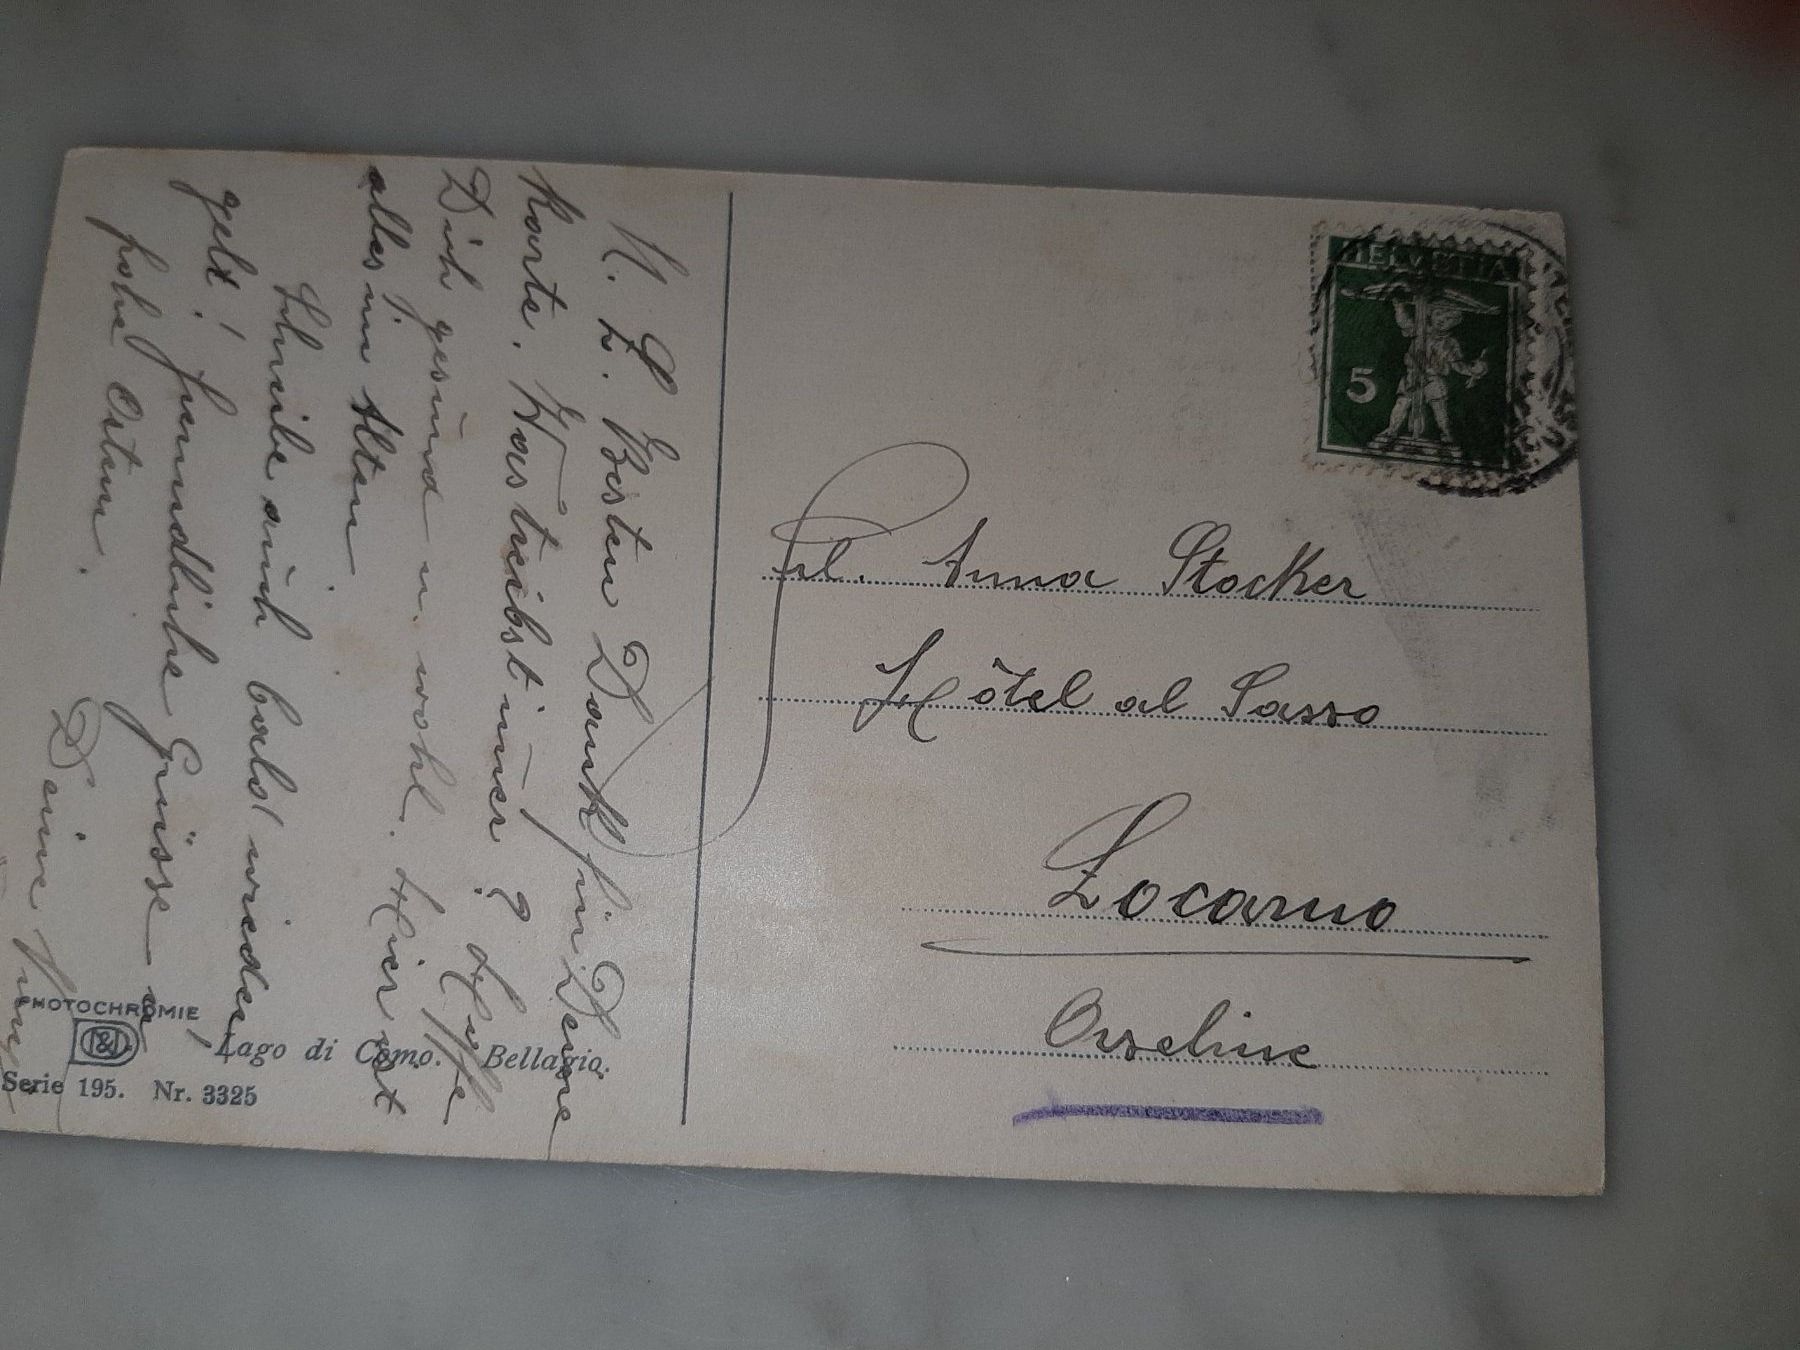 M. L. Besten Dank für Deine
Karte. Was treibst im̄er? Hoffe
Dich gesund u. wohl. Hier ist
alles im Alten
Schreibe auch bald wieder,
gelt! Freundliche Grüsse u.
frohe Ostern.
Deine
HELVETIA
5
Frl. Anna Stocker
Hôtel al Sasso
Locarno
Orselina
PHOTOCHROMIE
Lago di Como. Bellagio.
Serie 195. Nr. 3325